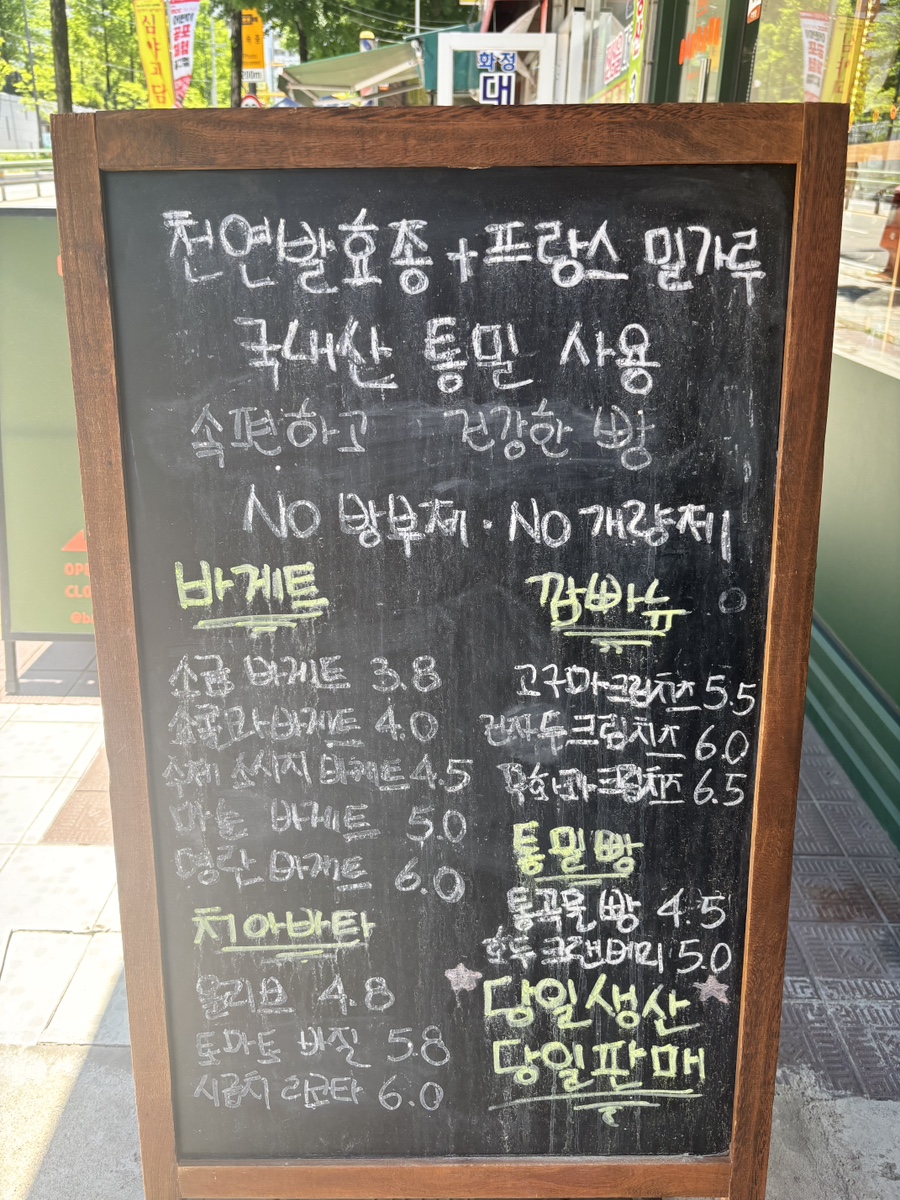 심야괴담
공포체험
200m
화정
대
천연발효종 + 프랑스 밀가루
국내산 통밀 사용
속편하고 건강한 빵
No 방부제 · No 개량제
바게트
소금 바게트 3.8
쇼콜라 바게트 4.0
수제 소시지 바게트 4.5
마늘 바게트 5.0
명란 바게트 6.0
치아바타
올리브 4.8
토마토 바질 5.8
시금치 리코타 6.0
깜빠뉴
고구마크림치즈 5.5
완두크림치즈 6.0
무화과크림치즈 6.5
통밀빵
통곡물빵 4.5
호두크랜베리 5.0
당일생산
당일판매
OPE
CLO
@b